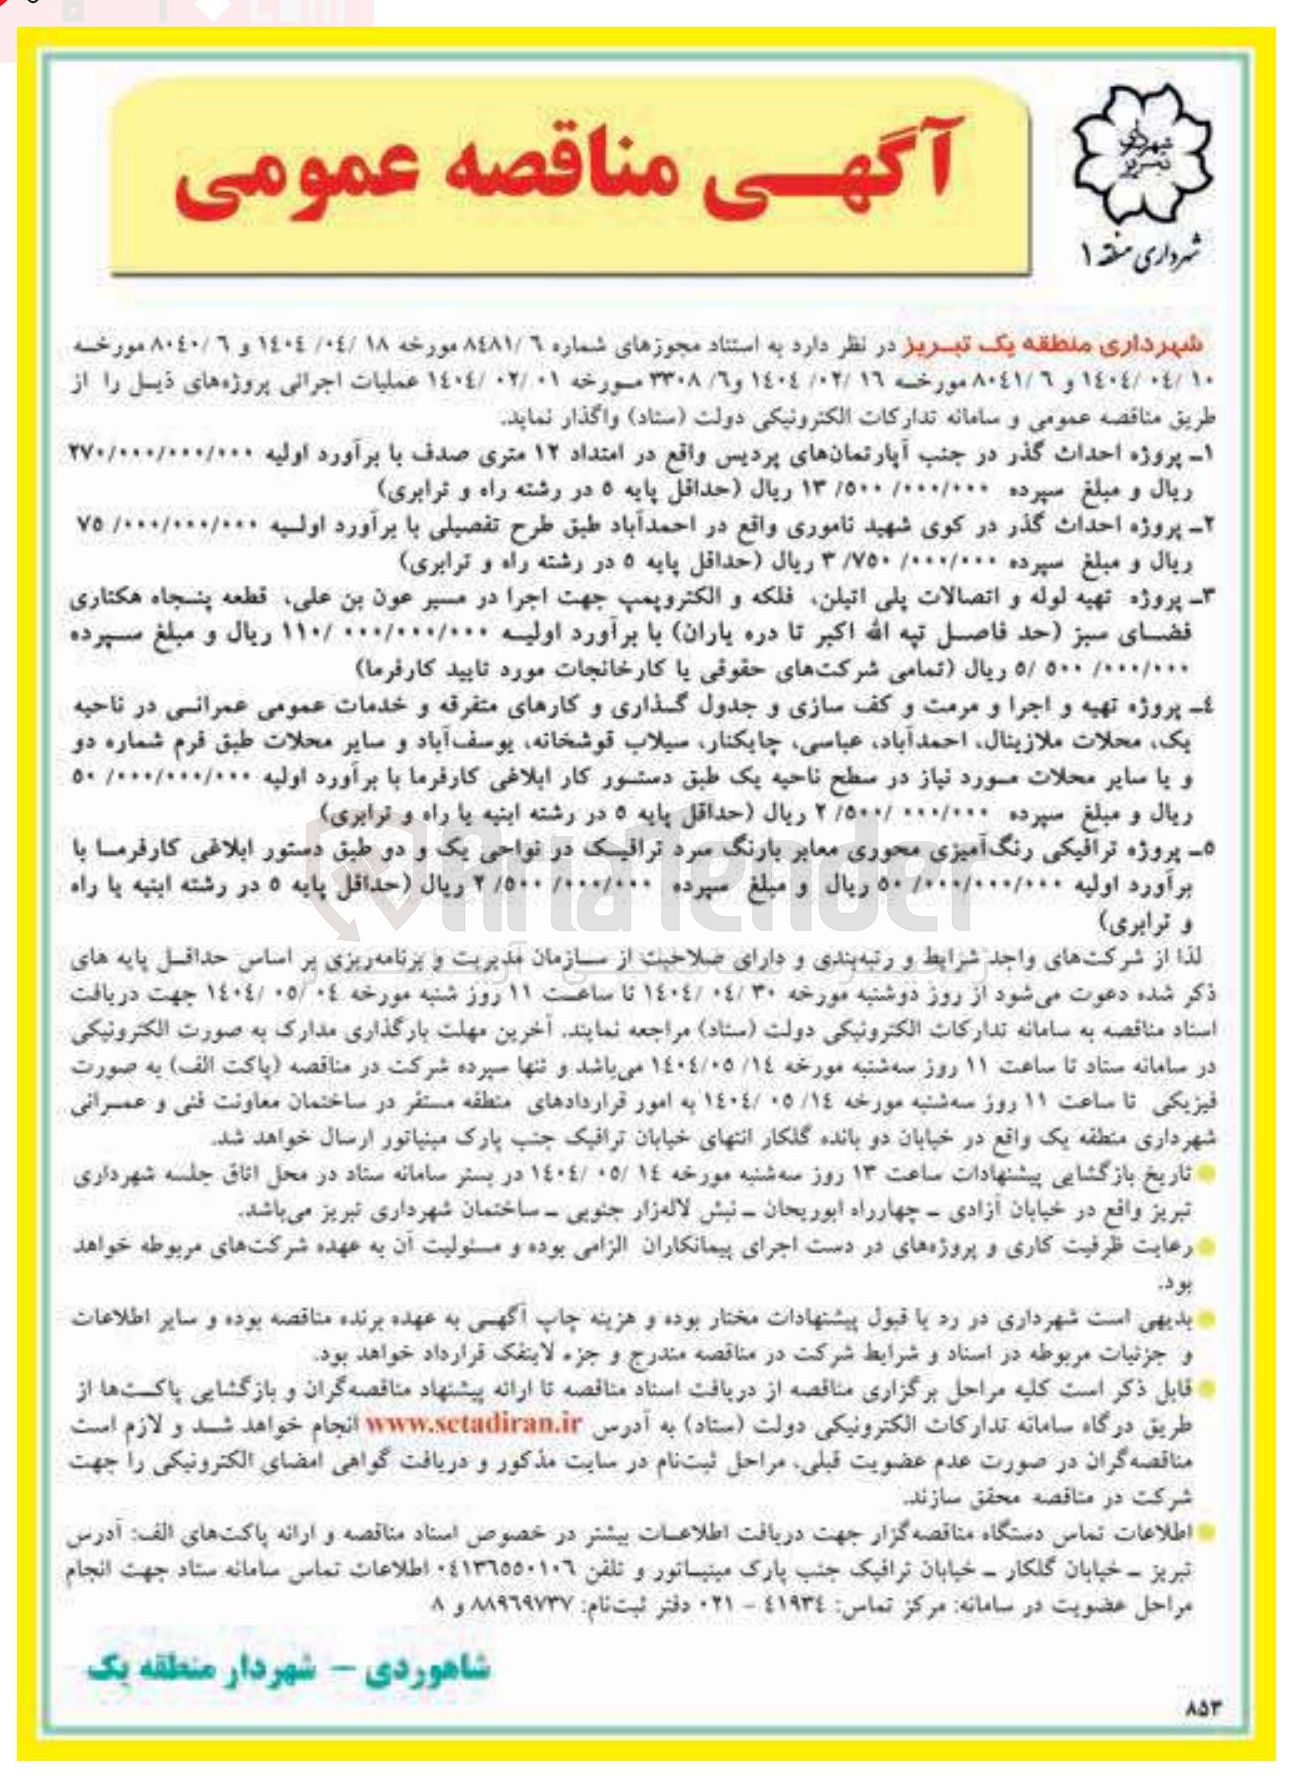 شهرداری تبریز
شهرداری منطقه ۱
آگهی مناقصه عمومی
شهرداری منطقه یک تبریز در نظر دارد به استناد مجوزهای شماره ۶ /۸۴۸۱ مورخه ۱۸ /۰۴/ ۱۴۰۴ و ۶ /۸۰۴۰ مورخه
۱۰ /۰۴ /۱۴۰۴ و ۶ /۸۰۴۱ مورخه ۱۶ /۰۲/ ۱۴۰۴ و۶/ ۳۳۰۸ مورخه ۰۱ /۰۲ /۱۴۰۴ عملیات اجرائی پروژه‌های ذیل را از
طریق مناقصه عمومی و سامانه تدارکات الکترونیکی دولت (ستاد) واگذار نماید.
۱ـ پروژه احداث گذر در جنب آپارتمان‌های پردیس واقع در امتداد ۱۲ متری صدف با برآورد اولیه ۲۷۰/۰۰۰/۰۰۰/۰۰۰
ریال و مبلغ سپرده ۱۳ /۵۰۰ /۰۰۰/۰۰۰ ریال (حداقل پایه ۵ در رشته راه و ترابری)
۲ـ پروژه احداث گذر در کوی شهید تاموری واقع در احمدآباد طبق طرح تفصیلی با برآورد اولیه ۷۵ /۰۰۰/۰۰۰/۰۰۰
ریال و مبلغ سپرده ۳ /۷۵۰ /۰۰۰/۰۰۰ ریال (حداقل پایه ۵ در رشته راه و ترابری)
۳ـ پروژه تهیه لوله و اتصالات پلی اتیلن، فلکه و الکتروپمپ جهت اجرا در مسیر عون بن علی، قطعه پنجاه هکتاری
فضای سبز (حد فاصل تپه الله اکبر تا دره یاران) با برآورد اولیه ۱۱۰/ ۰۰۰/۰۰۰/۰۰۰ ریال و مبلغ سپرده
۵/ ۵۰۰ /۰۰۰/۰۰۰ ریال (تمامی شرکت‌های حقوقی یا کارخانجات مورد تایید کارفرما)
۴ـ پروژه تهیه و اجرا و مرمت و کف سازی و جدول گذاری و کارهای متفرقه و خدمات عمومی عمرانی در ناحیه
یک، محلات ملازینال، احمدآباد، عباسی، چایکنار، سیلاب قوشخانه، یوسف‌آباد و سایر محلات طبق فرم شماره دو
و یا سایر محلات مورد نیاز در سطح ناحیه یک طبق دستور کار ابلاغی کارفرما با برآورد اولیه ۵۰ /۰۰۰/۰۰۰/۰۰۰
ریال و مبلغ سپرده ۲ /۵۰۰/ ۰۰۰/۰۰۰ ریال (حداقل پایه ۵ در رشته ابنیه یا راه و ترابری)
۵ـ پروژه ترافیکی رنگ‌آمیزی محوری معابر بارنگ سرد ترافیک در نواحی یک و دو طبق دستور ابلاغی کارفرما با
برآورد اولیه ۵۰ /۰۰۰/۰۰۰/۰۰۰ ریال و مبلغ سپرده ۲ /۵۰۰ /۰۰۰/۰۰۰ ریال (حداقل پایه ۵ در رشته ابنیه یا راه
و ترابری)
AriaTender
لذا از شرکت‌های واجد شرایط و رتبه‌بندی و دارای صلاحیت از سازمان مدیریت و برنامه‌ریزی بر اساس حداقل پایه های
ذکر شده دعوت می‌شود از روز دوشنبه مورخه ۳۰ /۰۴ /۱۴۰۴ تا ساعت ۱۱ روز شنبه مورخه ۰۴ /۰۵ /۱۴۰۴ جهت دریافت
اسناد مناقصه به سامانه تدارکات الکترونیکی دولت (ستاد) مراجعه نمایند. آخرین مهلت بارگذاری مدارک به صورت الکترونیکی
در سامانه ستاد تا ساعت ۱۱ روز سه‌شنبه مورخه ۱۴/ ۱۴۰۴/۰۵ می‌باشد و تنها سپرده شرکت در مناقصه (پاکت الف) به صورت
فیزیکی تا ساعت ۱۱ روز سه‌شنبه مورخه ۱۴/ ۰۵ /۱۴۰۴ به امور قراردادهای منطقه مستقر در ساختمان معاونت فنی و عمرانی
شهرداری منطقه یک واقع در خیابان دو بانده گلکار انتهای خیابان ترافیک جنب پارک مینیاتور ارسال خواهد شد.
تاریخ بازگشایی پیشنهادات ساعت ۱۳ روز سه‌شنبه مورخه ۱۴ /۰۵ /۱۴۰۴ در بستر سامانه ستاد در محل اتاق جلسه شهرداری
تبریز واقع در خیابان آزادی ـ چهارراه ابوریحان ـ نبش لاله‌زار جنوبی ـ ساختمان شهرداری تبریز می‌باشد.
رعایت ظرفیت کاری و پروژه‌های در دست اجرای پیمانکاران الزامی بوده و مسئولیت آن به عهده شرکت‌های مربوطه خواهد
بود.
بدیهی است شهرداری در رد یا قبول پیشنهادات مختار بوده و هزینه چاپ آگهی به عهده برنده مناقصه بوده و سایر اطلاعات
و جزئیات مربوطه در اسناد و شرایط شرکت در مناقصه مندرج و جزء لاینفک قرارداد خواهد بود.
قابل ذکر است کلیه مراحل برگزاری مناقصه از دریافت اسناد مناقصه تا ارائه پیشنهاد مناقصه‌گران و بازگشایی پاکت‌ها از
طریق درگاه سامانه تدارکات الکترونیکی دولت (ستاد) به آدرس www.setadiran.ir انجام خواهد شد و لازم است
مناقصه‌گران در صورت عدم عضویت قبلی، مراحل ثبت‌نام در سایت مذکور و دریافت گواهی امضای الکترونیکی را جهت
شرکت در مناقصه محقق سازند.
اطلاعات تماس دستگاه مناقصه‌گزار جهت دریافت اطلاعات بیشتر در خصوص اسناد مناقصه و ارائه پاکت‌های الف: آدرس
تبریز ـ خیابان گلکار ـ خیابان ترافیک جنب پارک مینیاتور و تلفن ۰۴۱۳۶۵۵۰۱۰۶ اطلاعات تماس سامانه ستاد جهت انجام
مراحل عضویت در سامانه: مرکز تماس: ۴۱۹۳۴ - ۰۲۱ دفتر ثبت‌نام: ۸۸۹۶۹۷۳۷ و ۸
شاهوردی - شهردار منطقه یک
۸۵۳